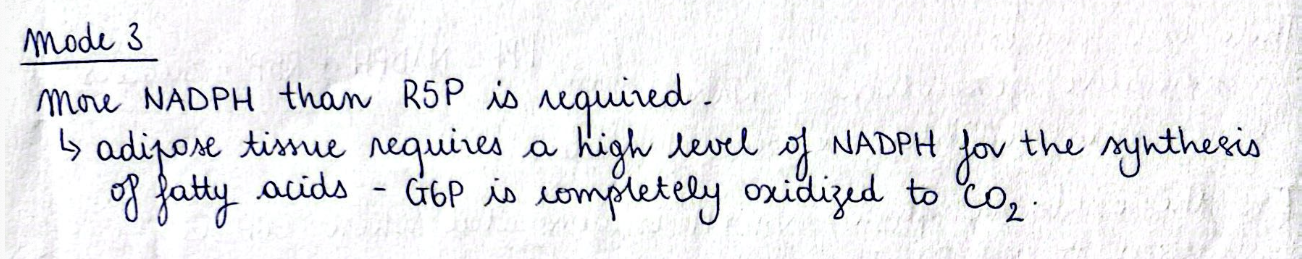 Mode 3
More NADPH than R5P is required.
↳ adipose tissue requires a high level of NADPH for the synthesis
of fatty acids - G6P is completely oxidized to CO₂.